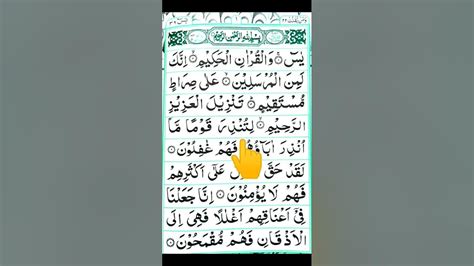 بِسْمِ اللّٰهِ الرَّحْمٰنِ الرَّحِيْمِ
يٰسٓ ۝ وَالْقُرْاٰنِ الْحَكِيْمِ ۝ اِنَّكَ
لَمِنَ الْمُرْسَلِيْنَ ۝ عَلٰى صِرَاطٍ
مُّسْتَقِيْمٍ ۝ تَنْزِيْلَ الْعَزِيْزِ
الرَّحِيْمِ ۝ لِتُنْذِرَ قَوْمًا مَّاۤ
اُنْذِرَ اٰبَآؤُهُمْ فَهُمْ غٰفِلُوْنَ ۝
لَقَدْ حَقَّ عَلٰۤى اَكْثَرِهِمْ
فَهُمْ لَا يُؤْمِنُوْنَ ۝ اِنَّا جَعَلْنَا
فِيْۤ اَعْنَاقِهِمْ اَغْلٰلًا فَهِيَ اِلَى
الْاَذْقَانِ فَهُمْ مُّقْمَحُوْنَ ۝